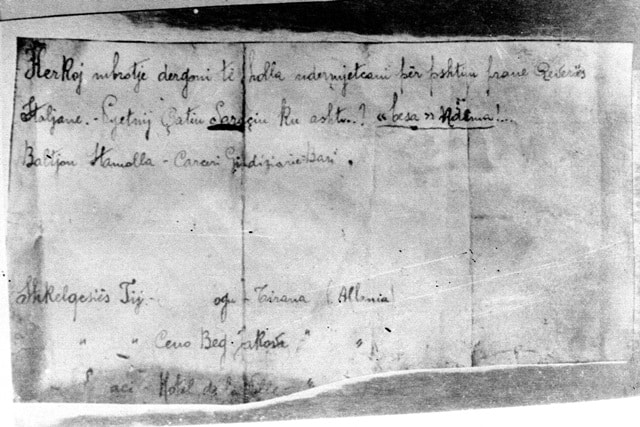 Herkoj mbrotje dergoni të holla ndermjetcani për pshtim prane Qeveriës
Italjane. - Pyetnij Çatin Saraçin ku asht...? « besa » Ndëma!...
Baltjon Stamolla - Carceri Giudiziarie - Bari.
Shkelqesiës Tij - ogu - Tirana (Albania)
" " Ceno Beg Jakova " "
aci - Hotel de "